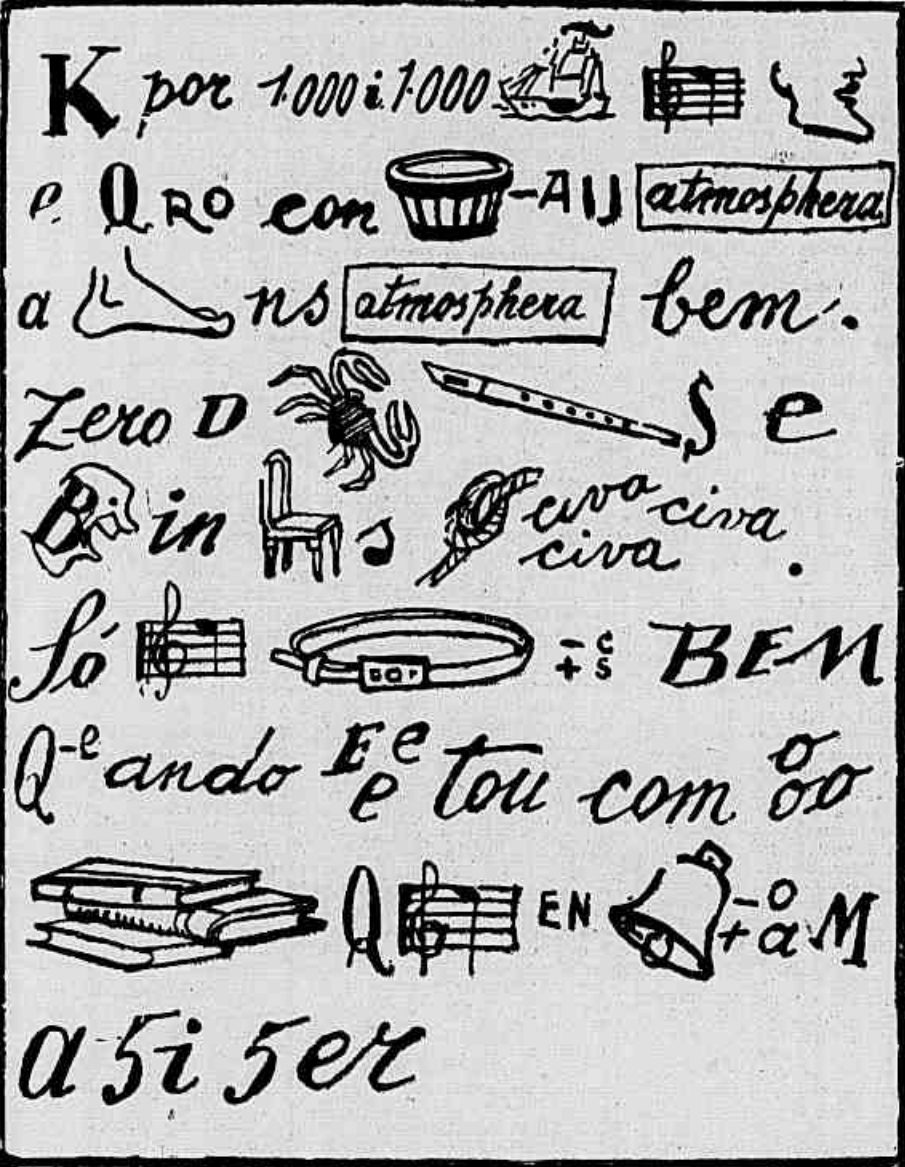 K por 1.000 i 1.000
e Q RO con -A IJ atmosphera
a ns atmosphera bem.
Zero D S e
B in s civa civa civa.
Só -c +s BEM
Q-e ando E e e tou com o o o
Q EN -o +a M
a 5i 5er